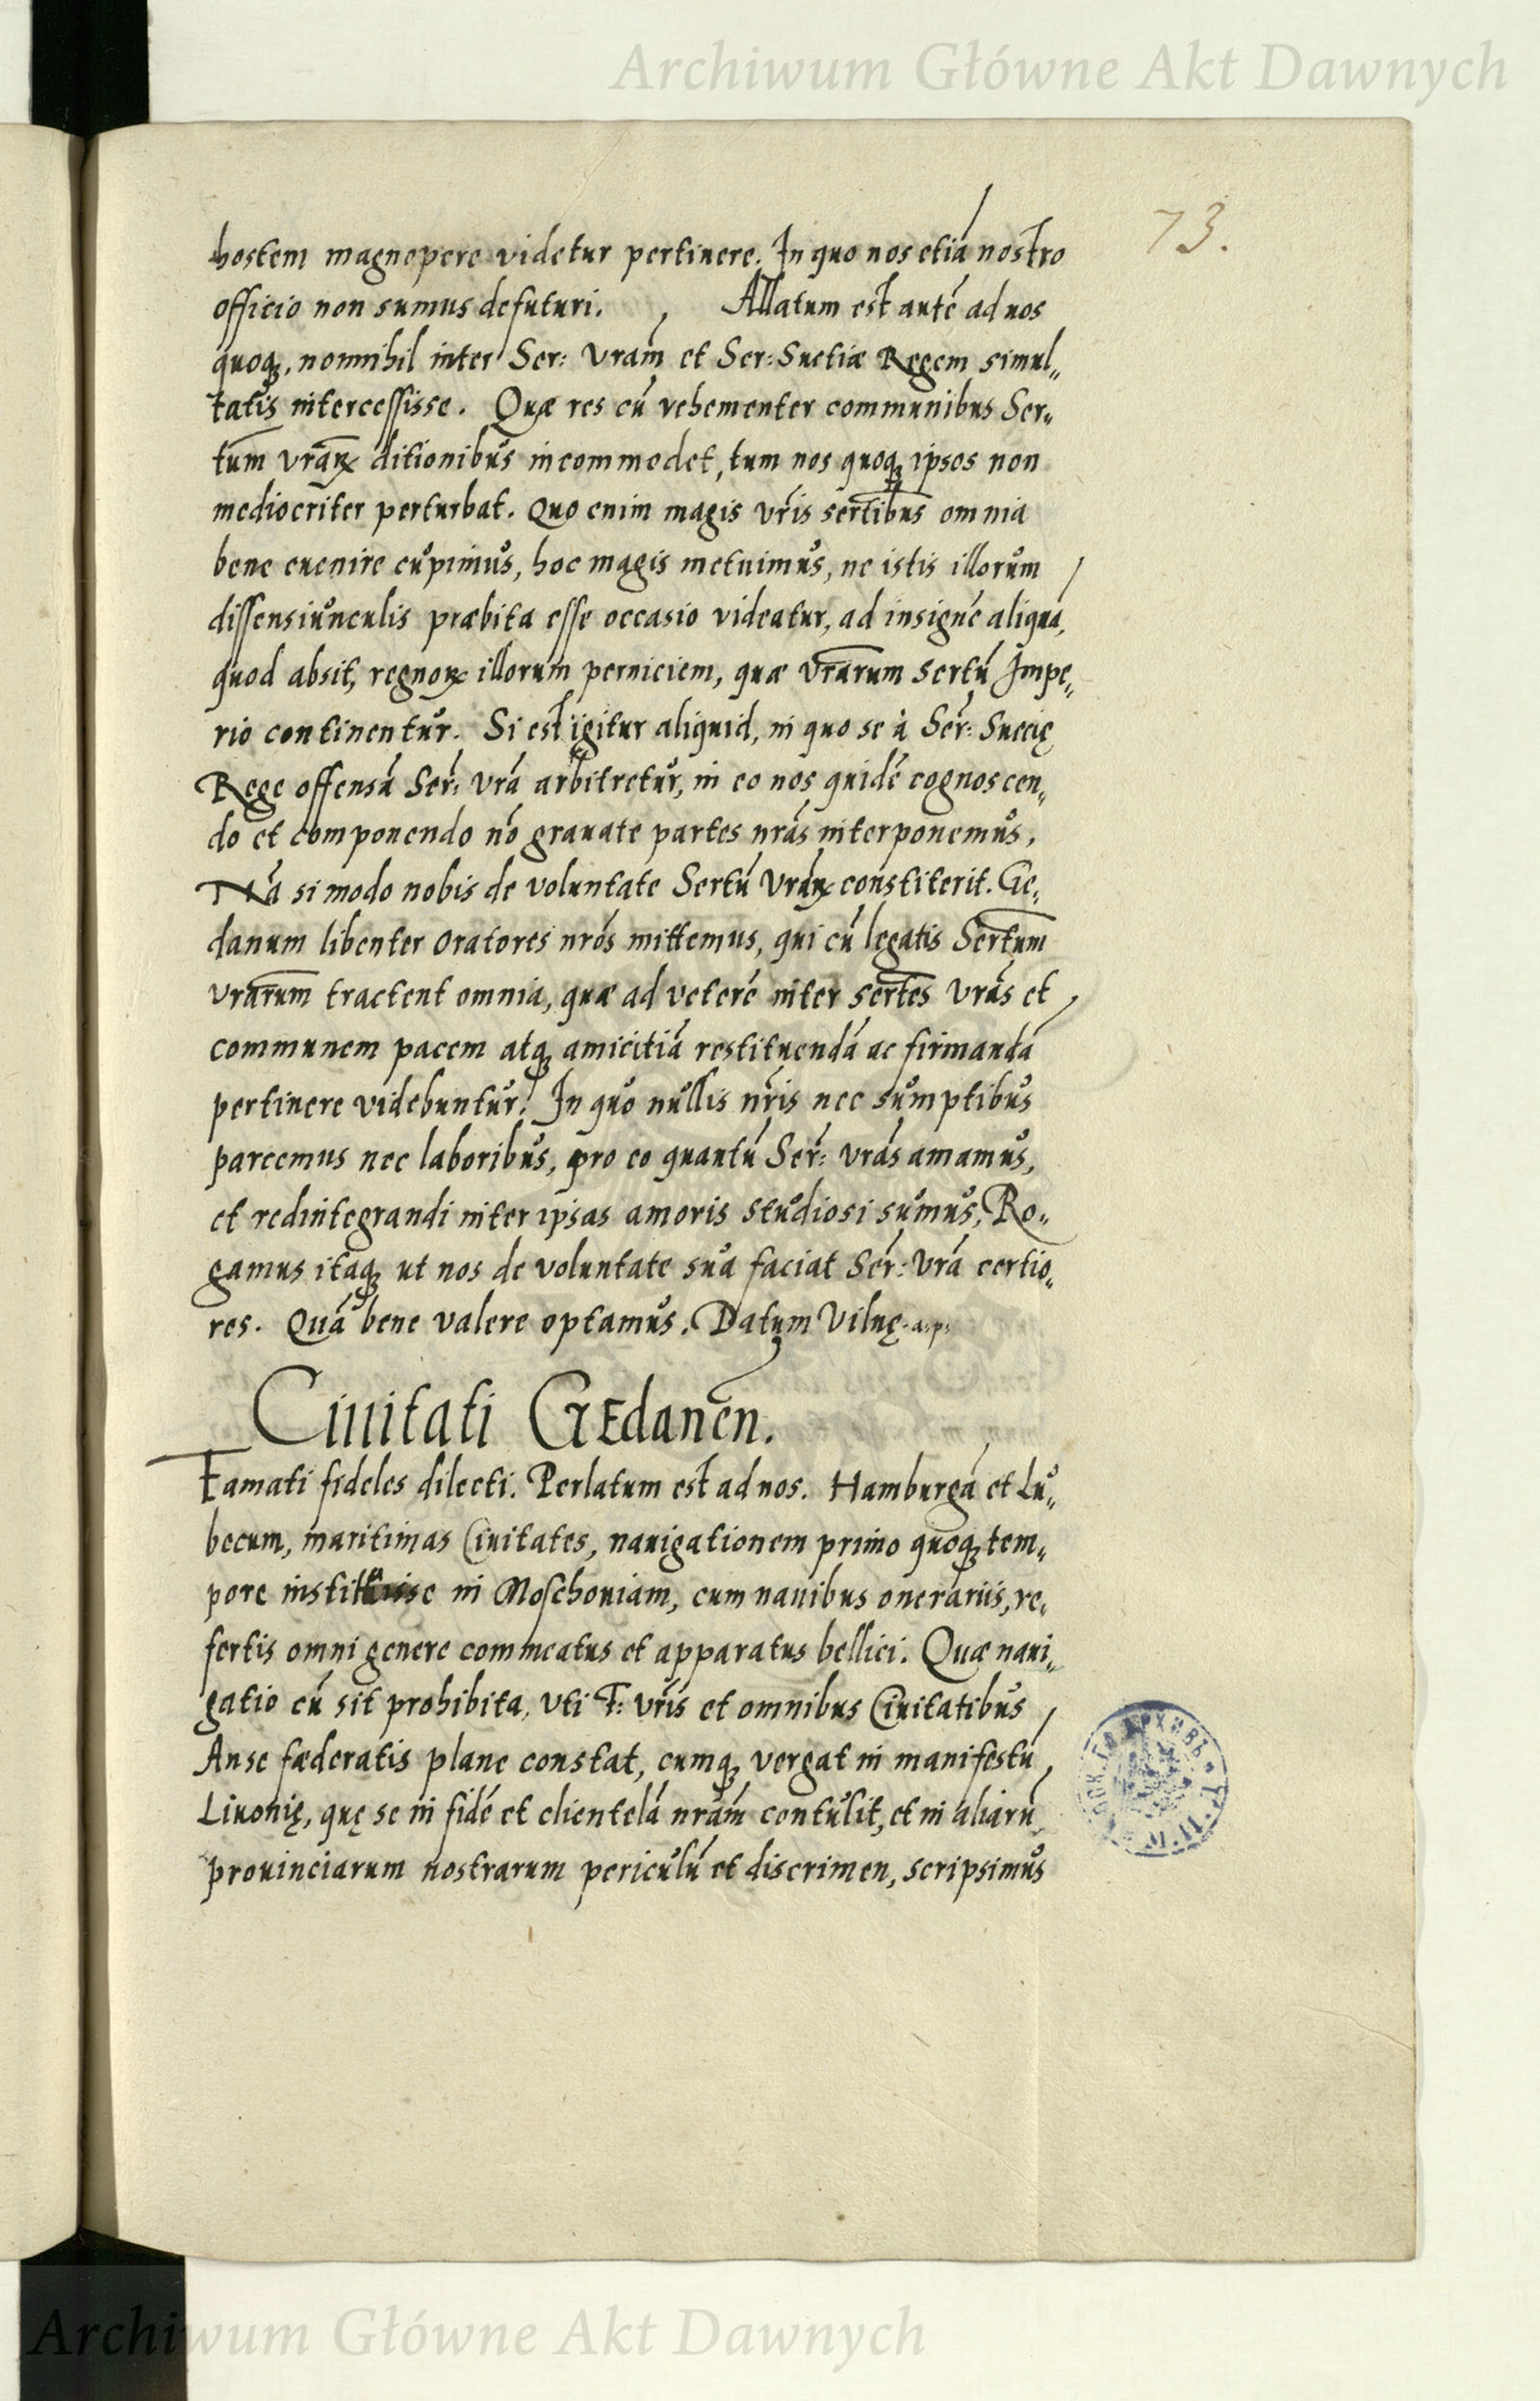 Archiwum Główne Akt Dawnych
73.
hostem magnopere videtur pertinere. In quo nos etiā nostro
officio non sumus defuturi. , Allatum est autē ad nos
quoq, nonnihil inter Ser: Vram̄ et Ser: Suetiæ Regem simul„
tatis intercessisse. Quæ res cū vehementer communibus Ser„
tum̄ vrarꝝ ditionibus incommodet, tum nos quoq ipsos non
mediocriter perturbat. Quo enim magis vris̄ sertibus̄ omnia
bene euenire cupimus, hoc magis metuimus, ne istis illorum
dissensiunculis præbita esse occasio videatur, ad insignē aliquā,
quod absit, regnorꝝ illorum perniciem, quæ vrārum sertū Impe„
rio continentur. Si est igitur aliquid, in quo se à Ser: Suecię
Rege offensā Ser: vrā arbitretur, in eo nos quidē cognoscen„
do et componendo nō grauate partes nrās interponemus.
Nā si modo nobis de voluntate Sertū Vrārꝝ constiterit. Ge„
danum libenter oratores nrōs mittemus, qui cū legatis Sertum̄
vrārum tractent omnia, quæ ad veterē inter sertes̄ vrās et
communem pacem atq amicitiā restituendā ac firmandā
pertinere videbuntur. In quo nullis nrīs nec sumptibus
parcemus nec laboribus, pro eo quantū Ser: vrās amamus,
et redintegrandi inter ipsas amoris studiosi sumus, Ro„
gamus itaq ut nos de voluntate sua faciat Ser: Vrā certio„
res. Quā bene valere optamus. Datum Vilnę.
Ciuitati GEdanen̄.
Famati fideles dilecti. Perlatum est ad nos. Hamburgā et Lu„
becum, maritimas Ciuitates, nauigationem primo quoq tem„
pore in Moschouiam, cum nauibus onerariis, re„
fertis omni genere commeatus et apparatus bellici. Quæ naui„
gatio cū sit prohibita, vti F: vrīs et omnibus Ciuitatibus
Anse fæderatis plane constat, cumq vergat in manifestū,
Liuonię, quę se in fidē et clientelā nrām contulit, et in aliarū
prouinciarum nostrarum periculū et discrimen, scripsimus
Archiwum Główne Akt Dawnych